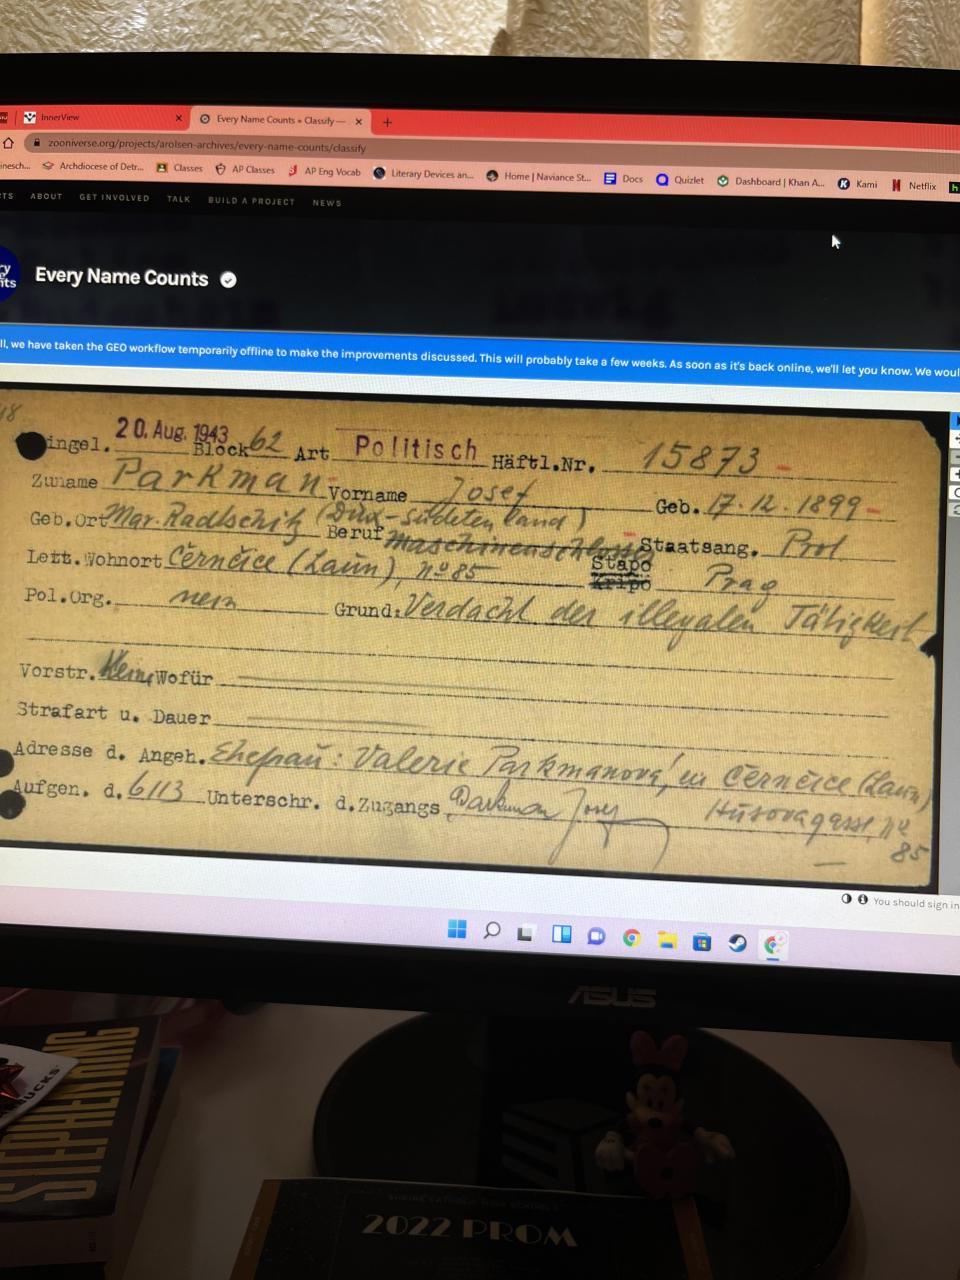 InnerView × Every Name Counts » Classify — × +
zooniverse.org/projects/arolsen-archives/every-name-counts/classify
Archdiocese of Detr... Classes AP Classes AP Eng Vocab Literary Devices an... Home | Naviance St... Docs Quizlet Dashboard | Khan A... Kami Netflix
ABOUT GET INVOLVED TALK BUILD A PROJECT NEWS
Every Name Counts
ll, we have taken the GEO workflow temporarily offline to make the improvements discussed. This will probably take a few weeks. As soon as it's back online, we'll let you know. We woul
20. Aug. 1943
ingel. Block 62 Art Politisch Häftl.Nr. 15873
Zuname Parkman Vorname Josef Geb. 17.12.1899
Geb.Ort Mar. Radtschitz (Dux-sudetenland) Beruf Maschinenschlosser Staatsang. Prot
Lett.Wohnort Černčice (Laun), nº 85 Stapo Kripo Prag
Pol.Org. nein Grund: Verdacht der illegalen Tätigkeit
Vorstr. Keine Wofür
Strafart u. Dauer
Adresse d. Angeh. Ehefrau: Valerie Parkmanová, in Černčice (Laun)
Husovagasse, nº 85
Aufgen. d. 6113 Unterschr. d.Zugangs Parkman Josef
You should sign in
ASUS
STEPHEN KING
2022 PROM